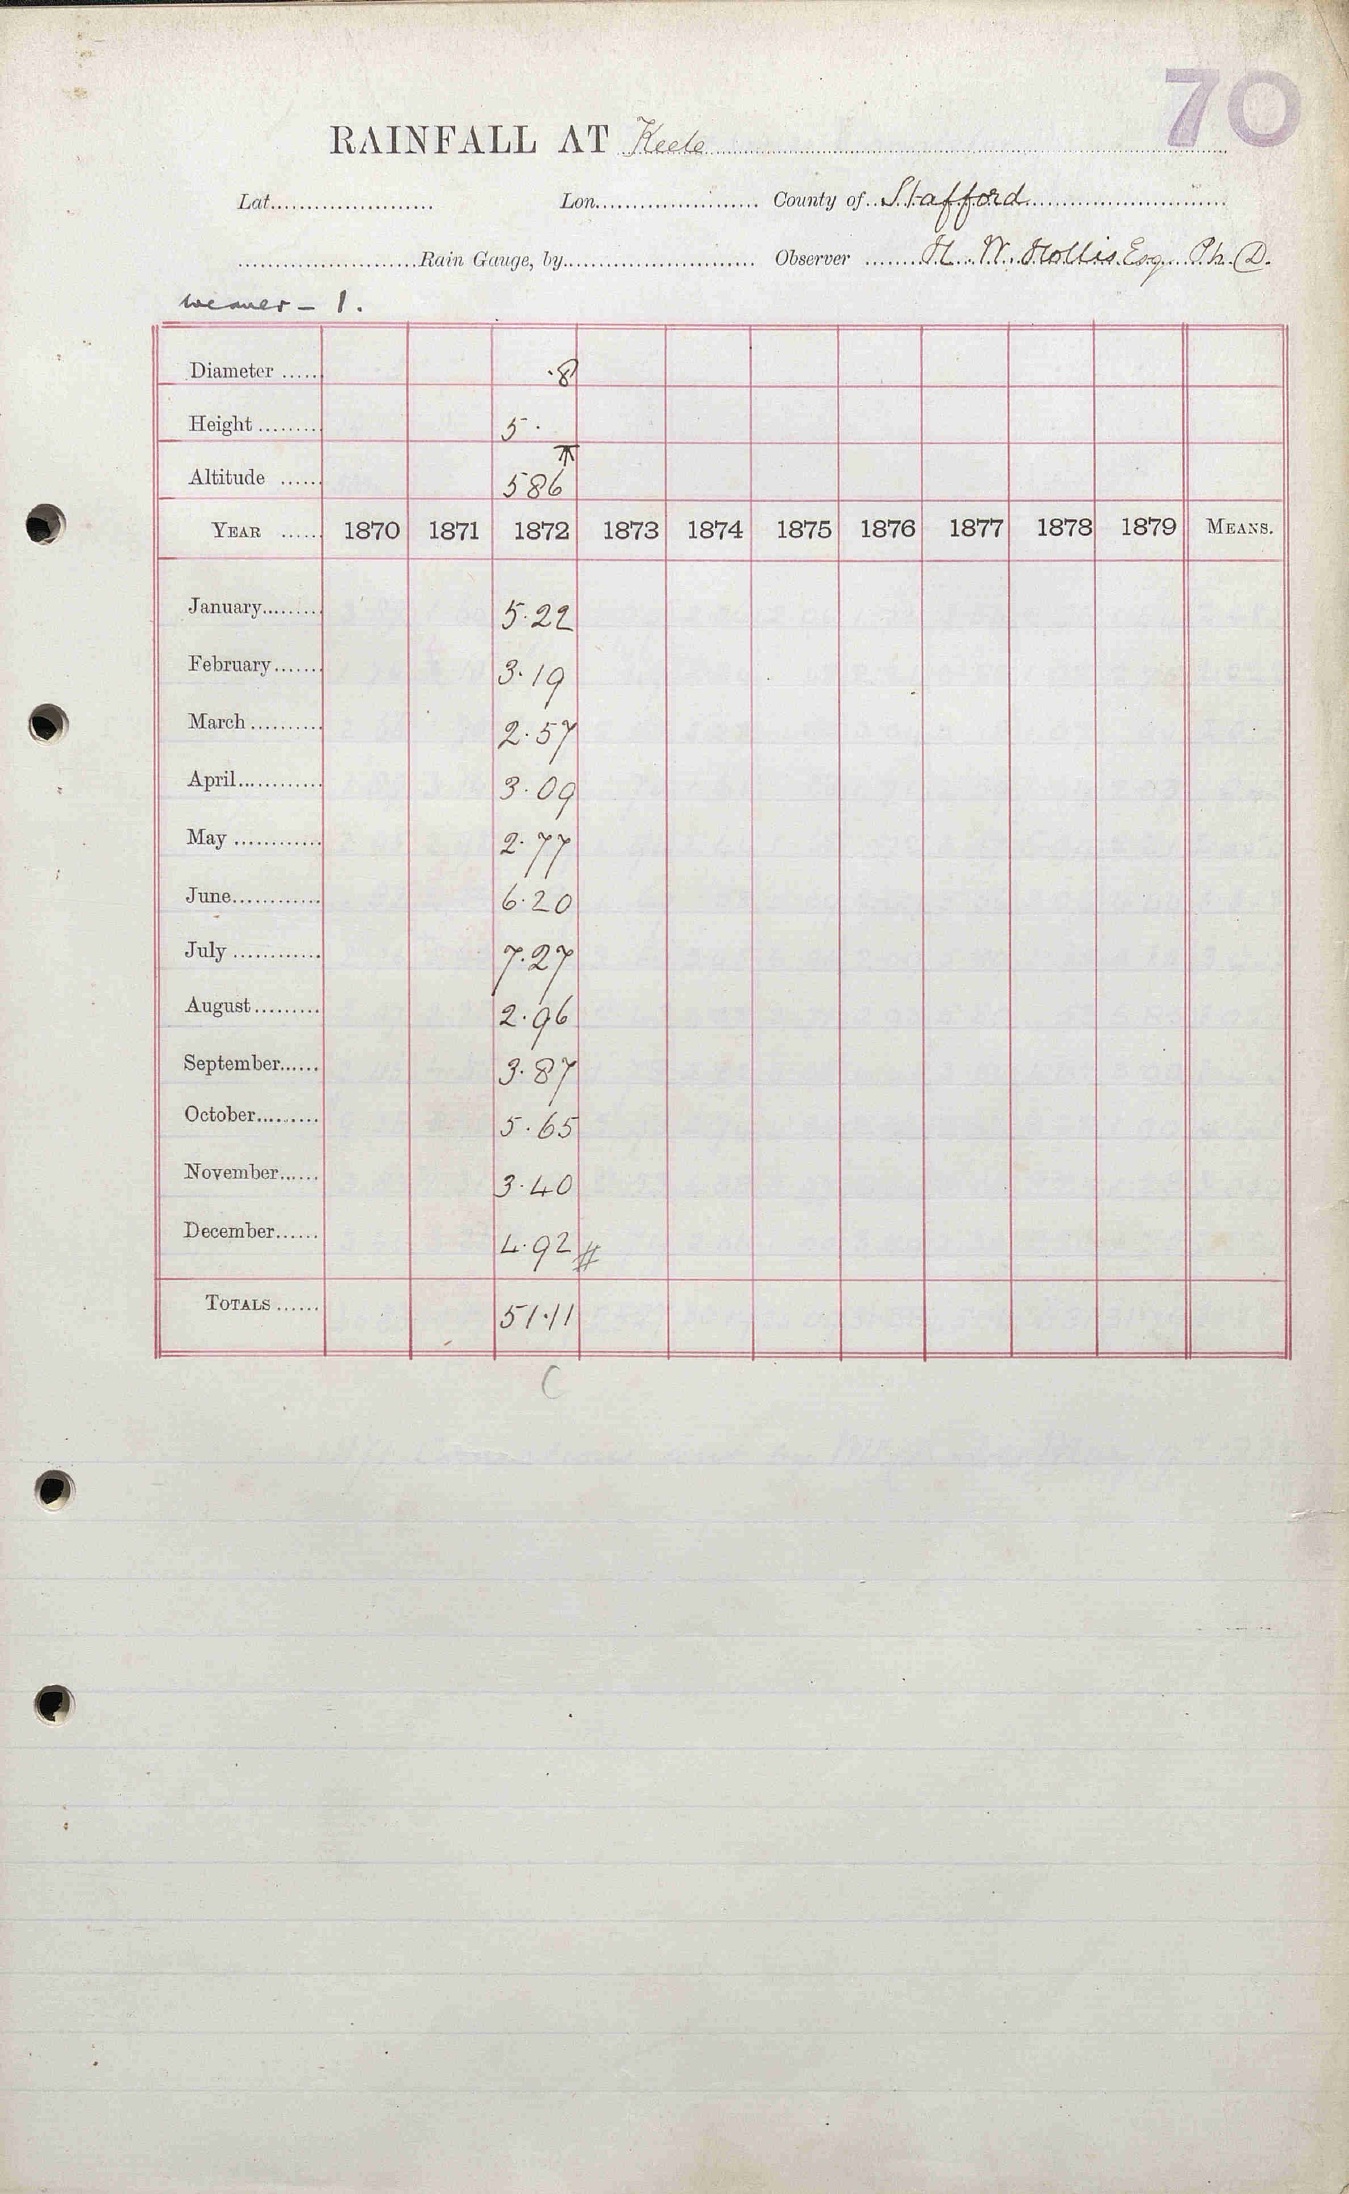 70
RAINFALL AT Keele
Lat. Lon. County of Stafford
Rain Gauge, by Observer H. W. Hollis Esq Ph. D.
Weaver - 1.
Diameter ...... ·8
Height ......... 5·
Altitude ...... 586
YEAR ...... 1870 1871 1872 1873 1874 1875 1876 1877 1878 1879 MEANS.
January......... 5·22
February....... 3·19
March .......... 2·57
April............ 3·09
May ............ 2·77
June............ 6·20
July ............ 7·27
August......... 2·96
September...... 3·87
October......... 5·65
November...... 3·40
December...... 4·92 #
TOTALS ...... 51·11
C